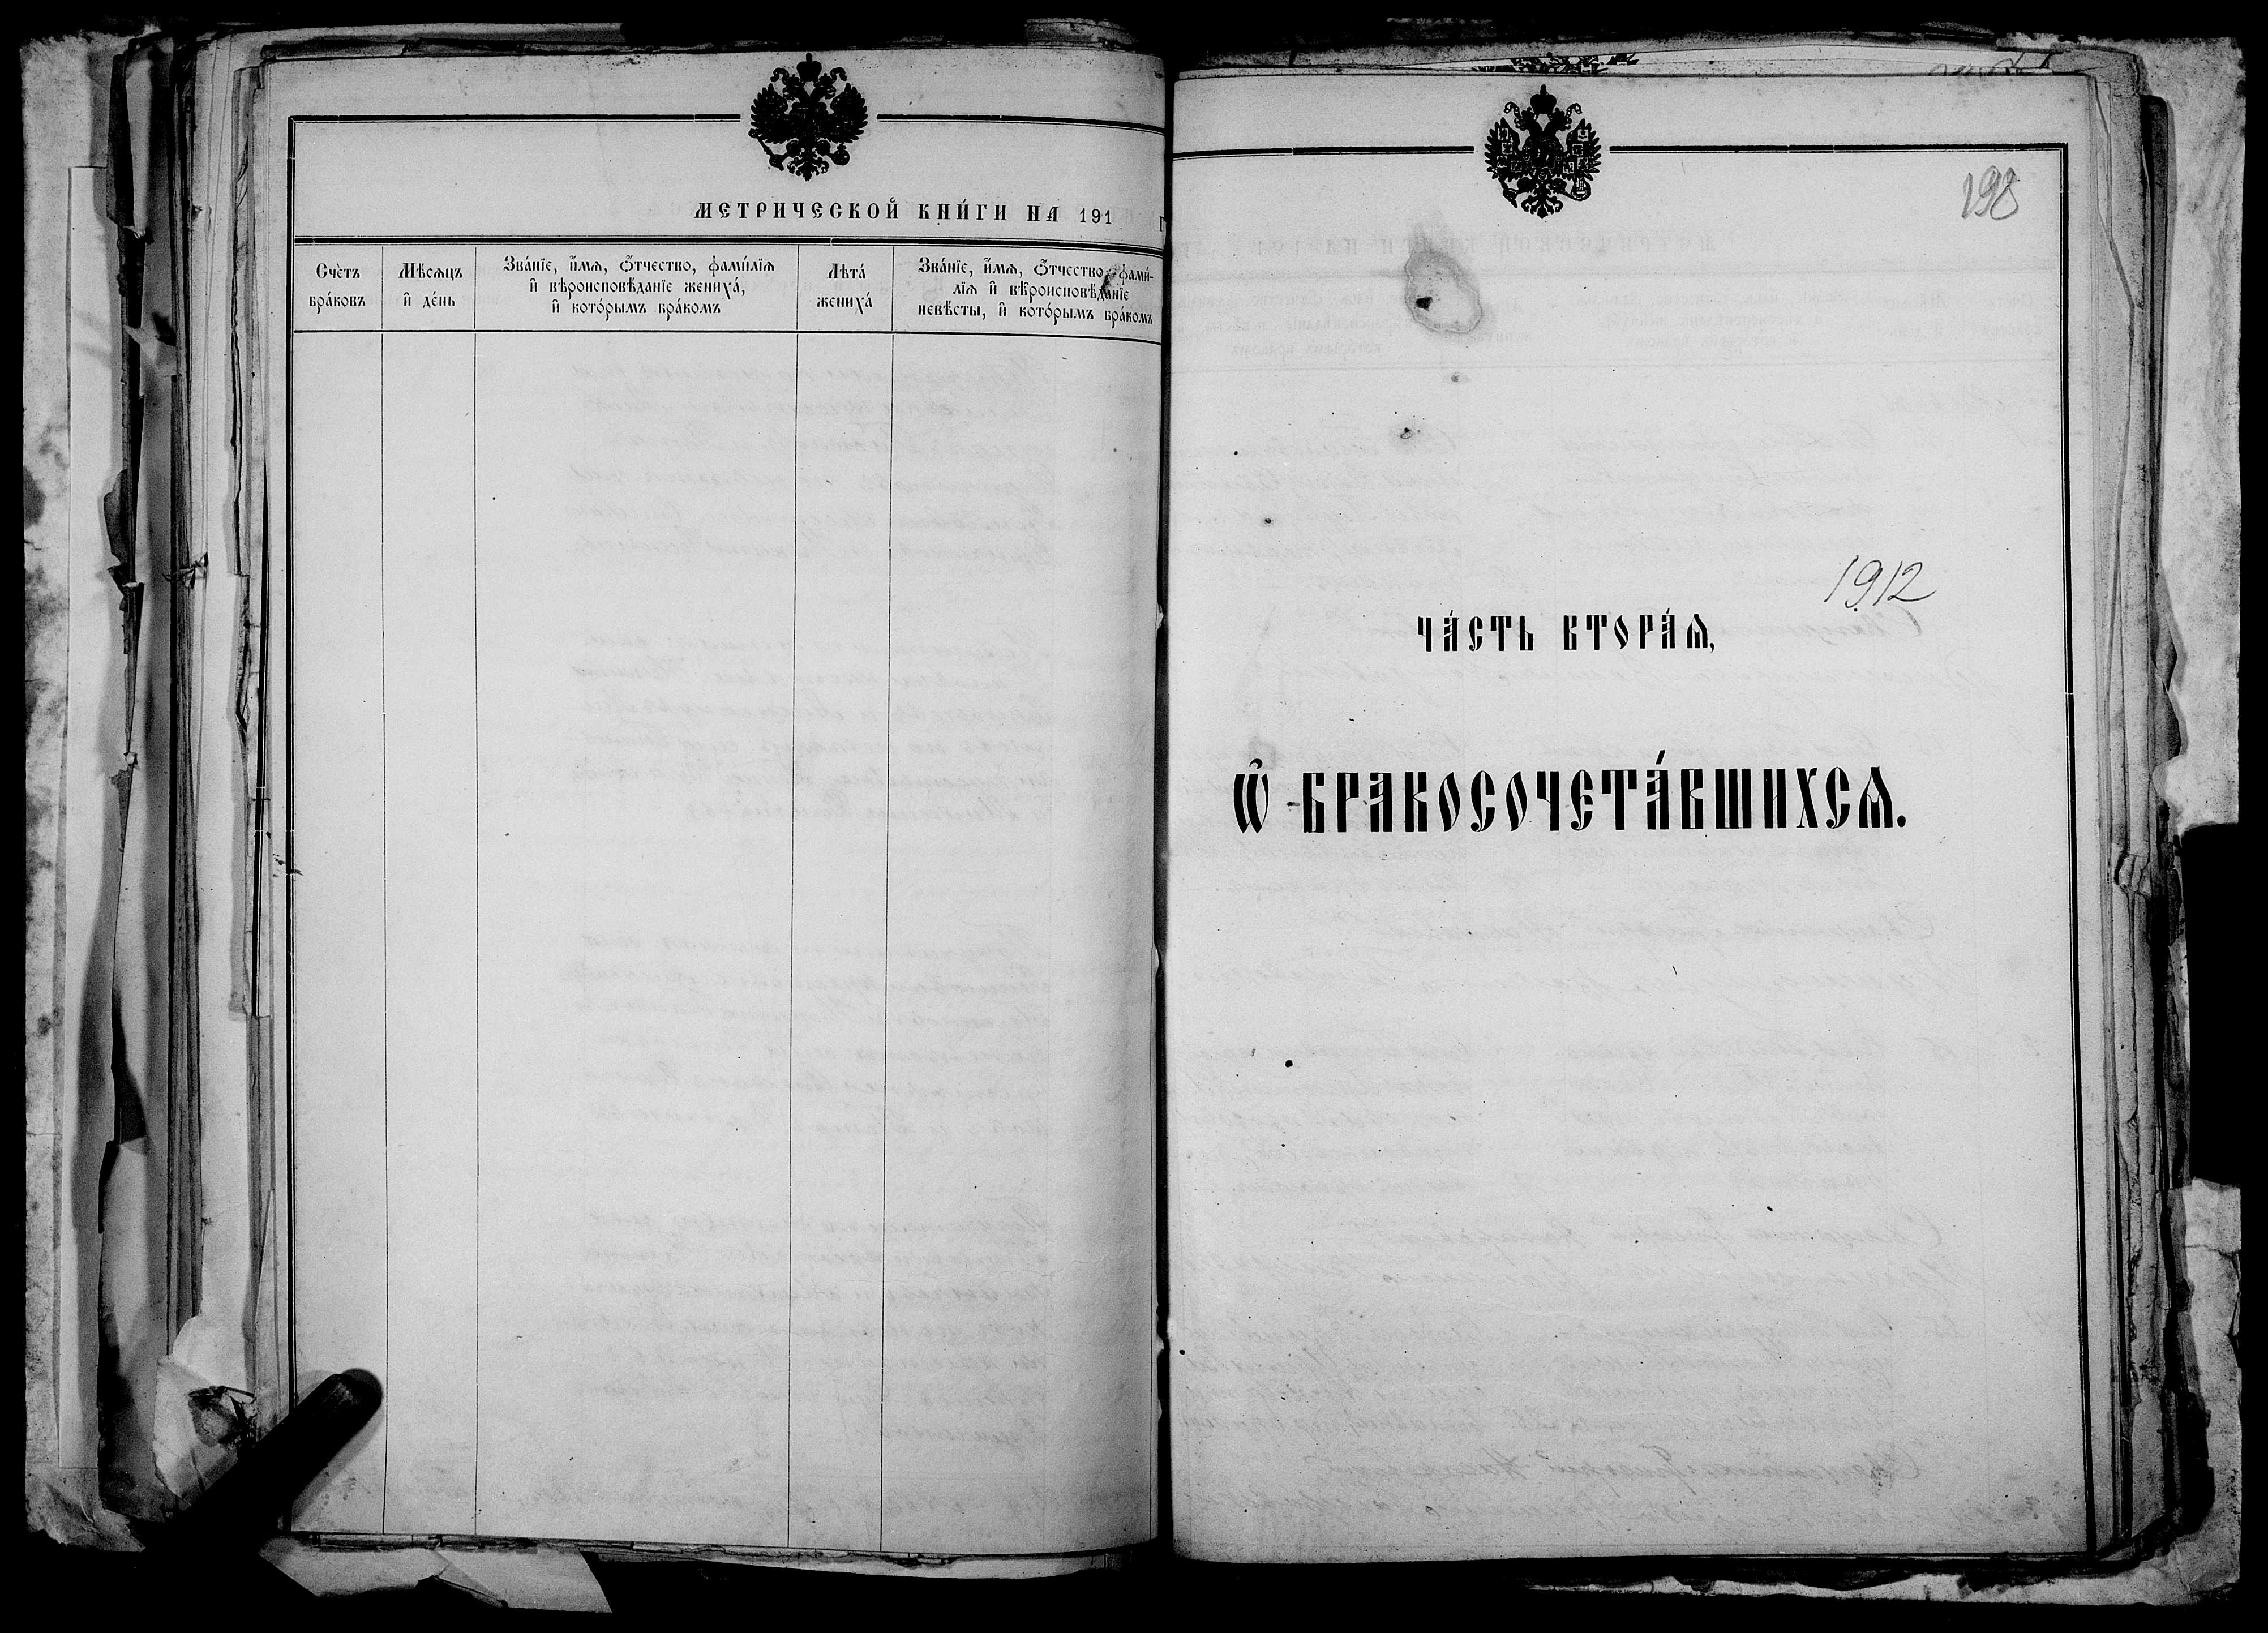 МЕТРИЧЕСКОЙ КНИ́ГИ НА 191
Сче́тъ
бра́ковъ
Мѣ́сѧцъ
и҆ де́нь
Зва́нїе, и҆́мѧ, ѻ҆́тчество, фами́лїѧ
и҆ вѣроисповѣ́данїе жениха́,
и҆ кото́рымъ бра́комъ
Лѣта́
жениха́
Зва́нїе, и҆́мѧ, ѻ҆́тчество, фами́-
лїѧ и҆ вѣроисповѣ́данїе
невѣ́сты, и҆ кото́рымъ бра́комъ
198
1912
ЧА́СТЬ ВТОРА́Ѧ,
Ѽ БРАКОСОЧЕТА́ВШИХСѦ.